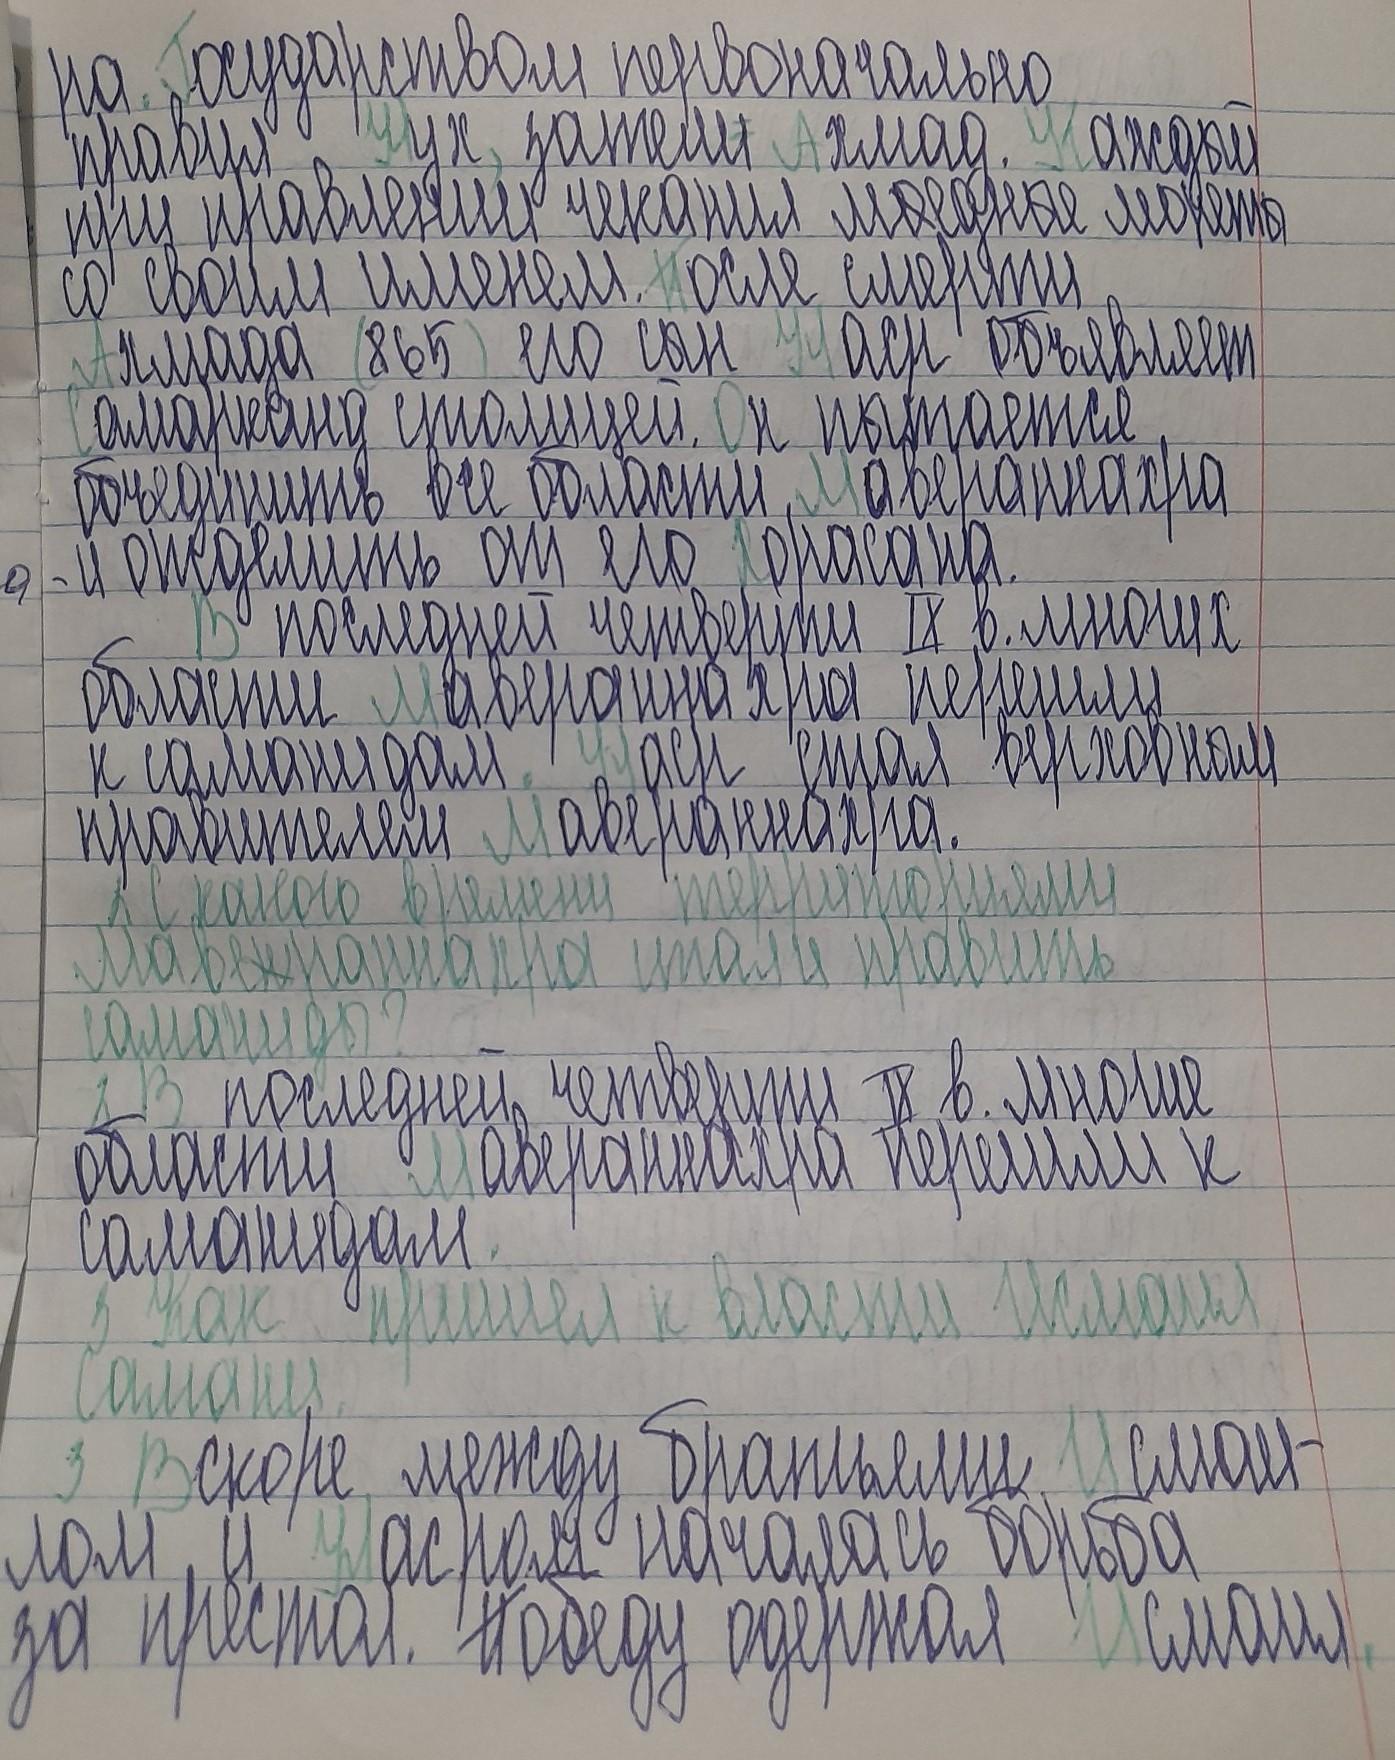 на. Государством первоначально
правил Нух, затем Ахмад. Каждый
при правлении чеканил медные монеты
со своим именем. После смерти
Ахмада (865) его сын Наср объявляет
Самарканд столицей. Он пытается
объединить все области Мавераннахра
и отделить от его Хорасана.
В последней четверти IX в. многих
области Мавераннахра перешли
к саманидам. Наср стал верховным
правителем Мавераннахра.
2 С какого времени территориями
Мавераннахра стали править
саманиды?
2 В последней четверти IX в. многие
области Мавераннахра перешли к
саманидам.
3 Как пришел к власти Исмаил
Самани.
3 Вскоре между братьями Исмаи-
лом и Насром началась борьба
за престол. Победу одержал Исмаил.